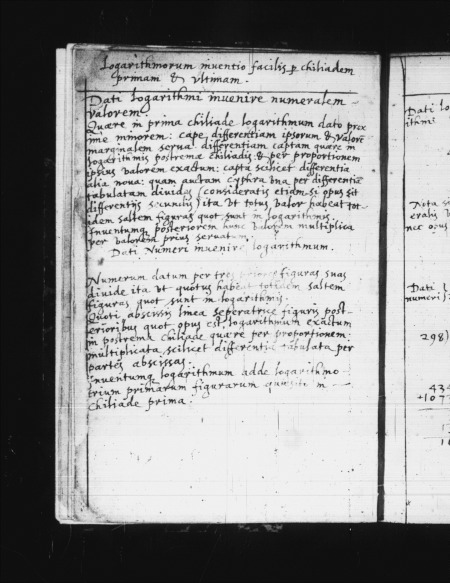 Logarithmorum inventio facilis p chiliadem
primam & vltimam.
Dati Logarithmi invenire numeralem
valorem.
Quære in prima chiliade logarithmum dato prox
ime minorem: cape differentiam ipsorum & valorē
marginalem serva. differentiam captam quære in
logarithmis postremæ chiliadis & per proportionem
ipsius valorem exactum: capta scilicet differentia
alia noua: quam auctam cyphra vna per differentiā
tabulatam diuidas (consideratis etiam si opus sit
differentijs secundis) ita vt totus valor habeat tot-
idem saltem figuras quot sunt in logarithmis.
Inuentumq posteriorem hunc valorem multiplica
per valorem prius seruatum.
Dati Numeri invenire logarithmum.
Numerum datum per tres priores figuras suas
diuide ita vt quotus habeat totidem saltem
figuras quot sunt in logarithmis.
Quoti abscissis linea seperatrice figuris post-
erioribus quot opus est logarithmum exactum
in postrema chiliade quære per proportionem:
multiplicata scilicet differentia tabulata per
partes abscissas.
Inuentumq logarithmum adde logarithmo
trium primarum figurarum quæsito in
chiliade prima.
Dati Lo
ithmi
Nota si
eralis
nec opus
Dati
numeri
298)
434
+107
1
10